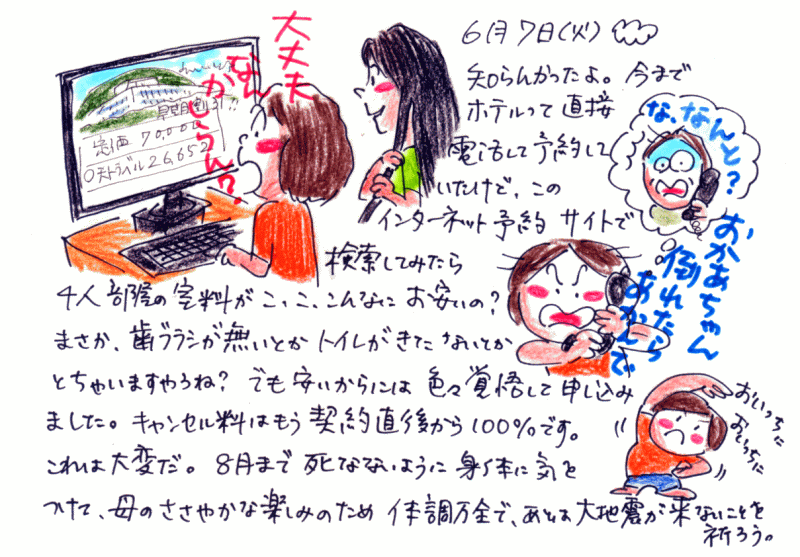 6月7日(火)
知らんかったよ。今まで
ホテルって直接
電話して予約して
いたけど、この
インターネット予約サイトで
検索してみたら
4人部屋の室料がこ、こ、こんなにお安いの?
まさか、歯ブラシが無いとかトイレがきたないとか
とちゃいますやろね? でも安いからには色々覚悟して申し込み
ました。キャンセル料はもう契約直後から100%です。
これは大変だ。8月まで死なないように身体に気を
つけて、母のささやかな楽しみのため体調万全で、あとは大地震が来ないことを
祈ろう。
大丈夫
なん
かしらん?
早期割引!!
定価 70,000
〇天トラベル 26,652
な、なんと?
おかあちゃん
倒れたら
あかんで
おいっちに
おいっちに